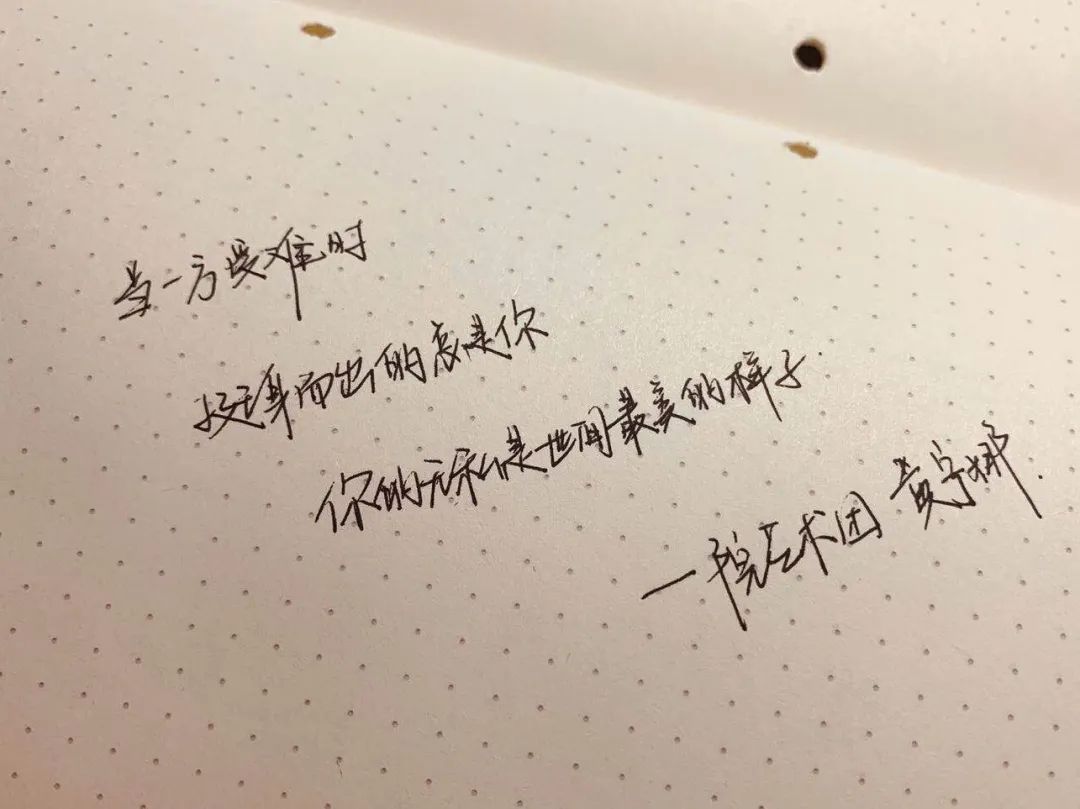 当一方受难时
挺身而出的总是你
你的无私是世间最美的样子.
一院艺术团 黄宇娜.